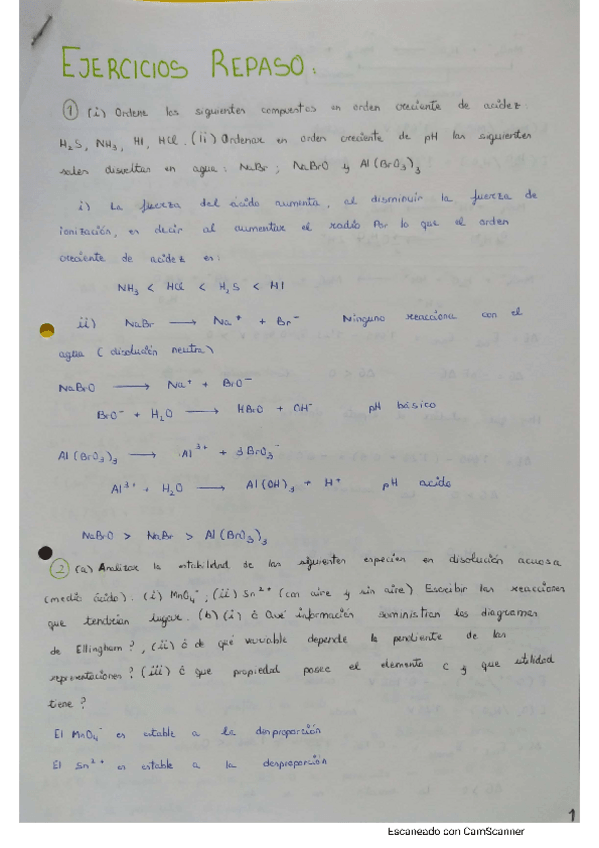 EJERCICIOS REPASO:
① (i) Ordene los siguientes compuestos en orden creciente de acidez:
H₂S, NH₃, HI, HCl. (ii) Ordenar en orden creciente de pH las siguientes
sales disueltas en agua: NaBr; NaBrO y Al(BrO₃)₃
i) La fuerza del ácido aumenta, al disminuir la fuerza de
ionización, es decir al aumentar el radio Por lo que el orden
creciente de acidez es:
NH₃ < HCl < H₂S < HI
ii) NaBr → Na⁺ + Br⁻ Ninguno reacciona con el
agua (disolución neutra)
NaBrO → Na⁺ + BrO⁻
BrO⁻ + H₂O → HBrO + OH⁻ pH básico
Al(BrO₃)₃ → Al³⁺ + 3BrO₃⁻
Al³⁺ + H₂O → Al(OH)₃ + H⁺ pH acido
NaBrO > NaBr > Al(BrO₃)₃
② (a) Analizar la estabilidad de las siguientes especies en disolución acuosa
(medio ácido). (i) MnO₄⁻; (ii) Sn²⁺ (con aire y sin aire) Escribir las reacciones
que tendrían lugar. (b) (i) ¿ Qué información suministran los diagramas
de Ellingham?, (ii) ¿ de qué variable depende la pendiente de las
representaciones? (iii) ¿ que propiedad posee el elemento C y que utilidad
tiene?
El MnO₄⁻ es estable a la desproporción
El Sn²⁺ es estable a la desproporción
1
Escaneado con CamScanner